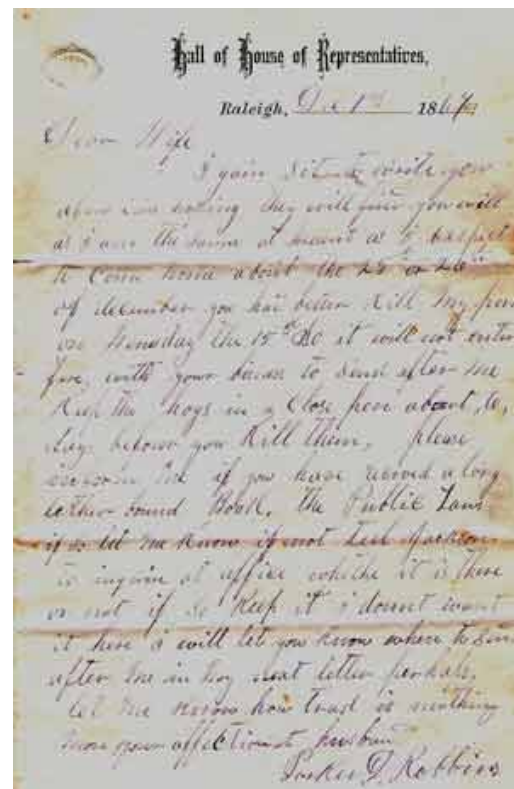 Hall of House of Representatives,
Raleigh, Dec 1st 186
Dear Wife
I gain write you
a few lines hoping they will find you well
as I am the same at
to come home about the 25th or 26th
of december you had better Kill my
on the 15th So it will not
fere with your to send after me
Keep the hogs in a Close pen about 10,
days before you Kill them, please
me if you have a long
lether bound Book, the Public Laws
if so let me Know if not tell Jackson
to inquire at office it is there
or not if so Keep it i dount want
it here i will let you Know where to
after me in my next letter perhaps,
let me Know how is nothing
more your affectionate husban
Parker D. Robbins